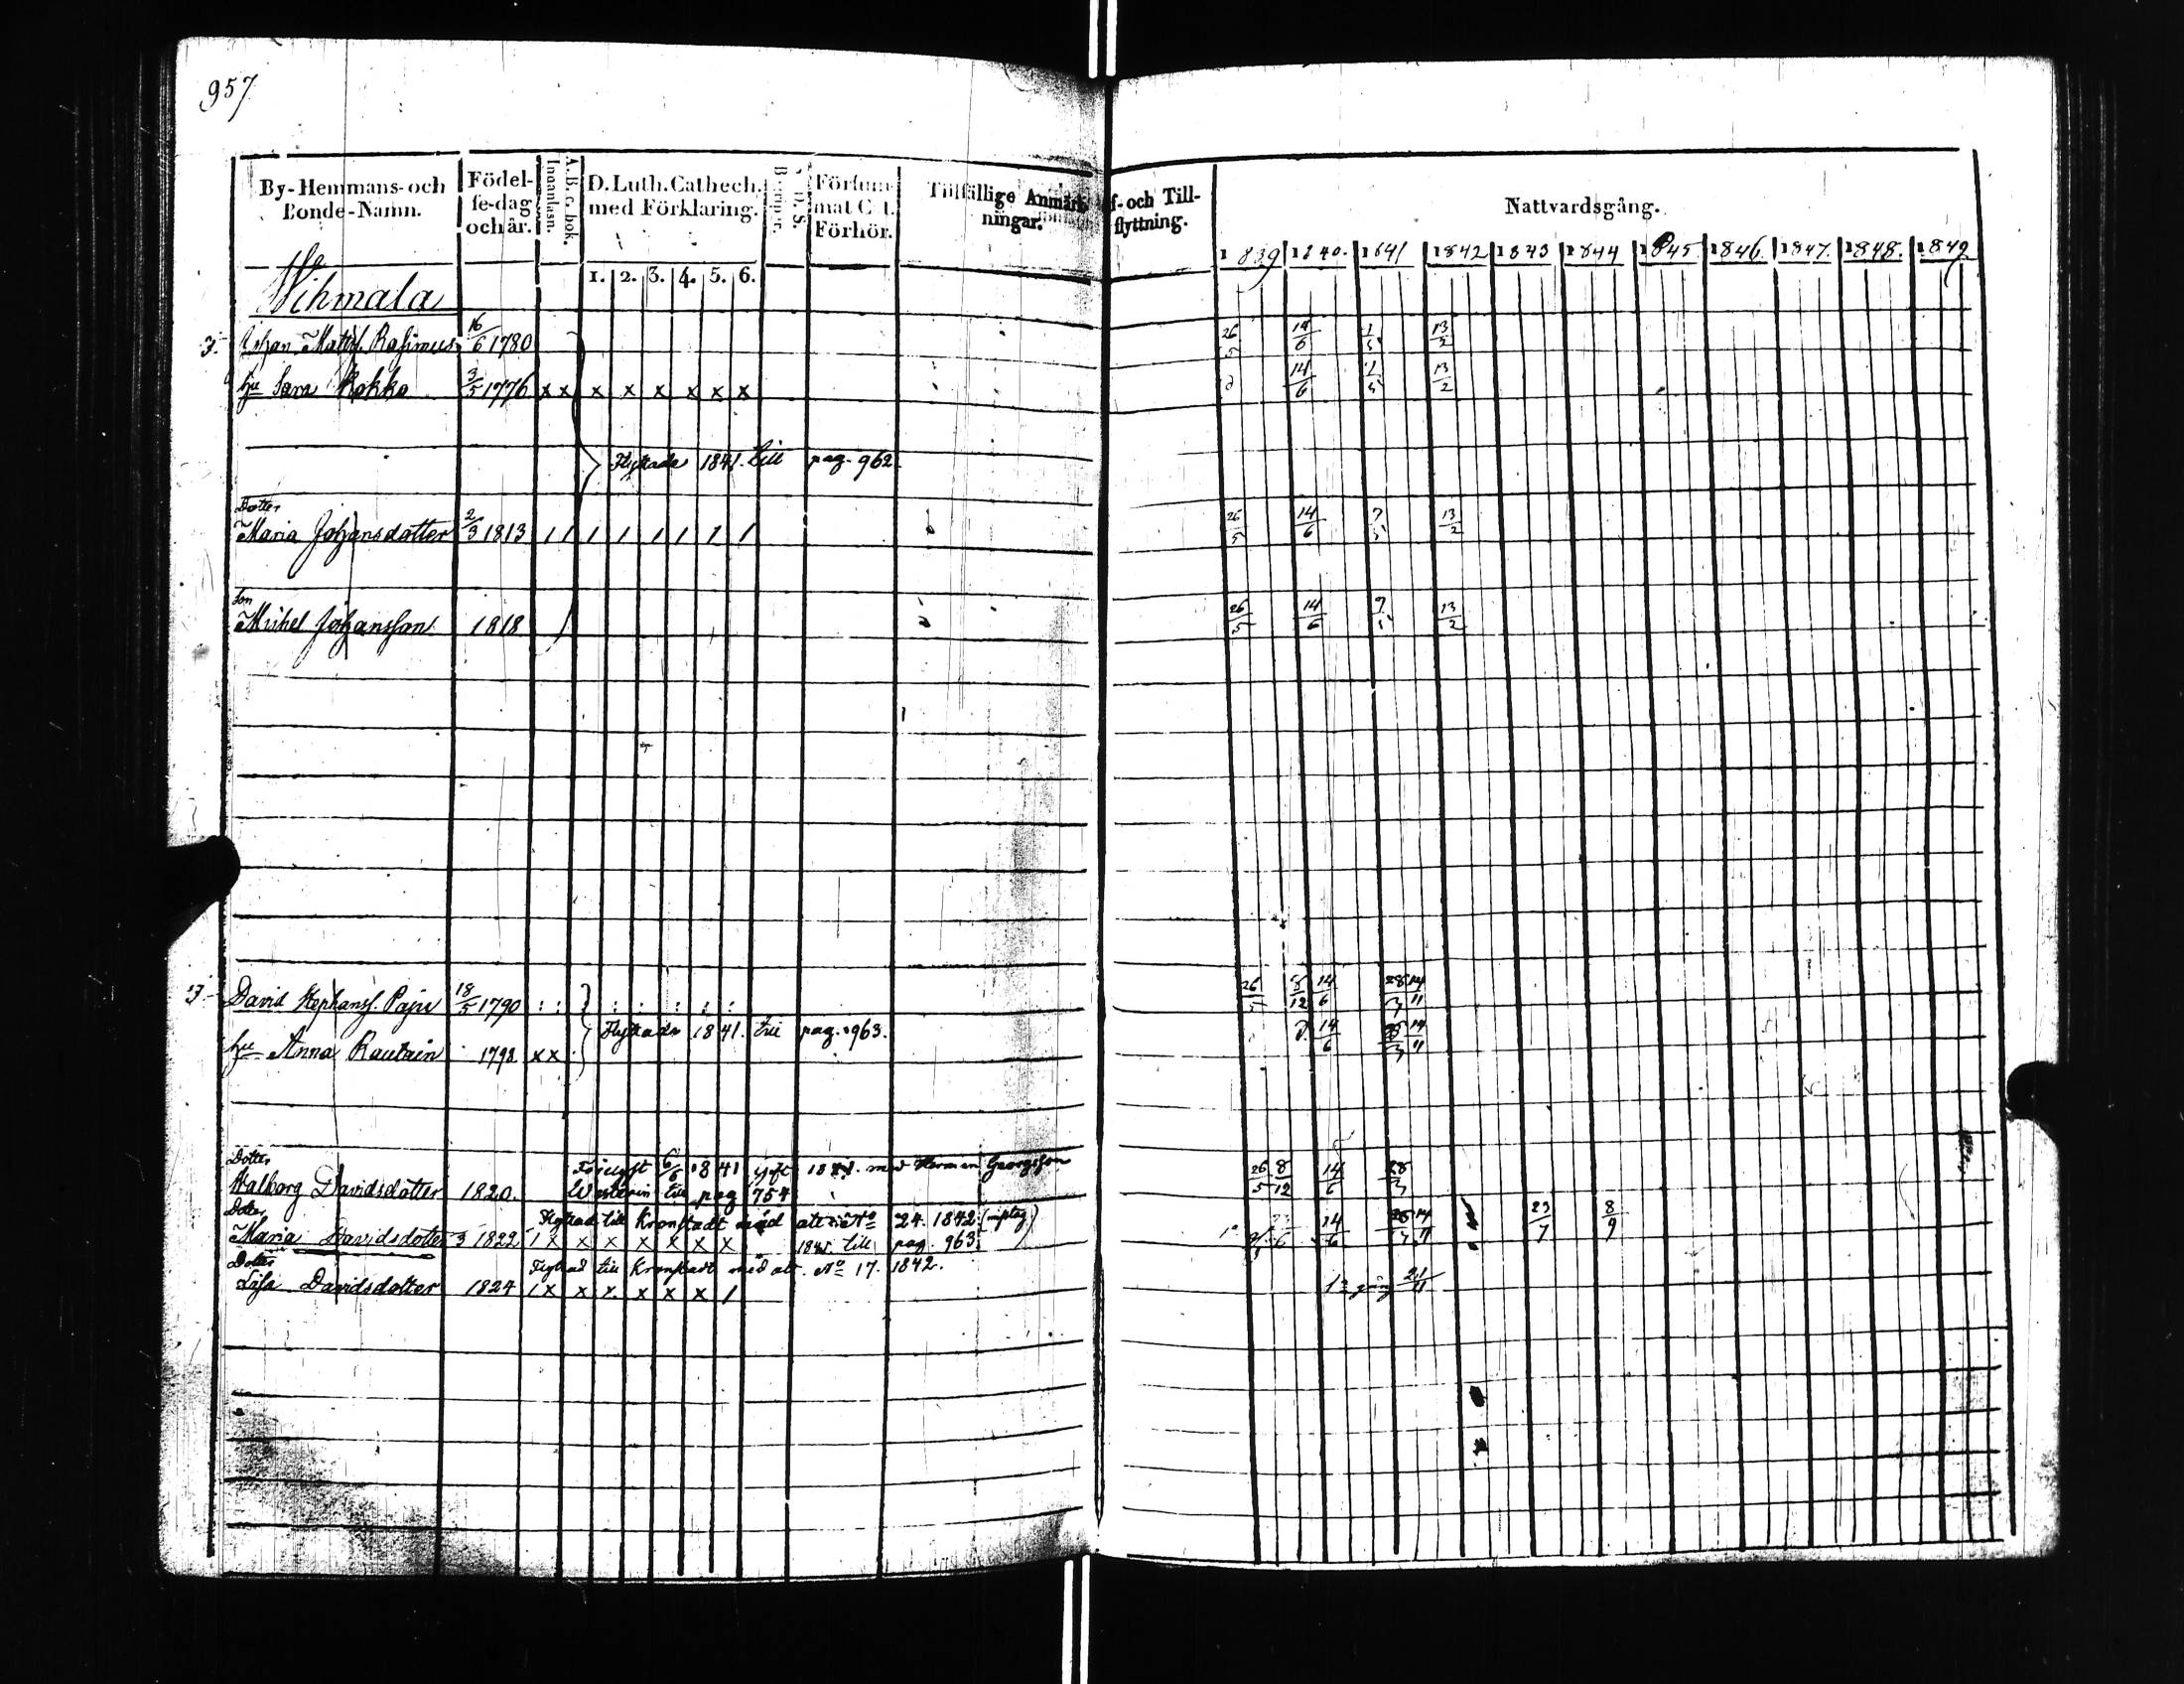 957
By-Hemmans- och Bonde-Namn.
Födel-se-dag och år.
Innanläsn.
A.B.c. bok.
D. Luth. Cathech. med Förklaring.
1. 2. 3. 4. 5. 6.
Försum-mat C t. Förhör.
Tillfällige Anmärk-ningar.
f- och Till-flyttning.
Nattvardsgång.
1839 1840. 1841 1842 1843 1844 1845 1846 1847. 1848. 1849
Wihmala
Johan Mattss. Rasimus 16/6 1780 26/5 14/6 13/2
hu Sara Kokko 3/5 1776 x x x x x x x x 14/6 13/2
Flyttade 1841. till pag. 962.
Dotter
Maria Johansdotter 2/3 1813 1 1 1 1 1 1 1 1 26/5 14/6 13/2
Son
Michel Johansson 1818 26/5 14/6 13/2
David Stephanss. Paju 18/5 1790 26/5 8/12 14/6 28/3 14/11
Flyttade 1841. till pag. 963.
hu Anna Rautain 1798 x x 14/6 14/11
Dotter
Walborg Davidsdotter 1820. 26/5 8/12 14/6 28/3
6/6 1841 gift med Herman Georgsson
till pag 754
Dotter
Flyttad till Kronstadt med att. No 24. 1842
Maria Davidsdotter 3 1822. 1 x x x x x x x till pag. 963. 14/6 23/7 8/9
Dotter
Flyttad till Kronstadt med att. No 17. 1842.
Lisa Davidsdotter 1824 1 x x x x x x 1 1a gång 21/11